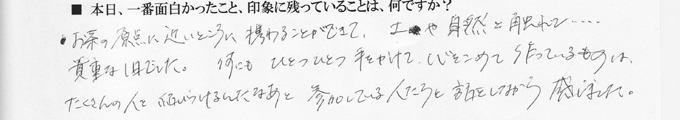 ■ 本日、一番面白かったこと、印象に残っていることは、何ですか？
・お茶の原点に近いところに携わることができて、土や自然と触れて‥‥
貴重な1日でした。 何にも ひとつひとつ 手をかけて、心をこめて 作っているものは、
たくさんの人と 結びつけるんだなあと 参加している人たちと 話をしながら 感じました。